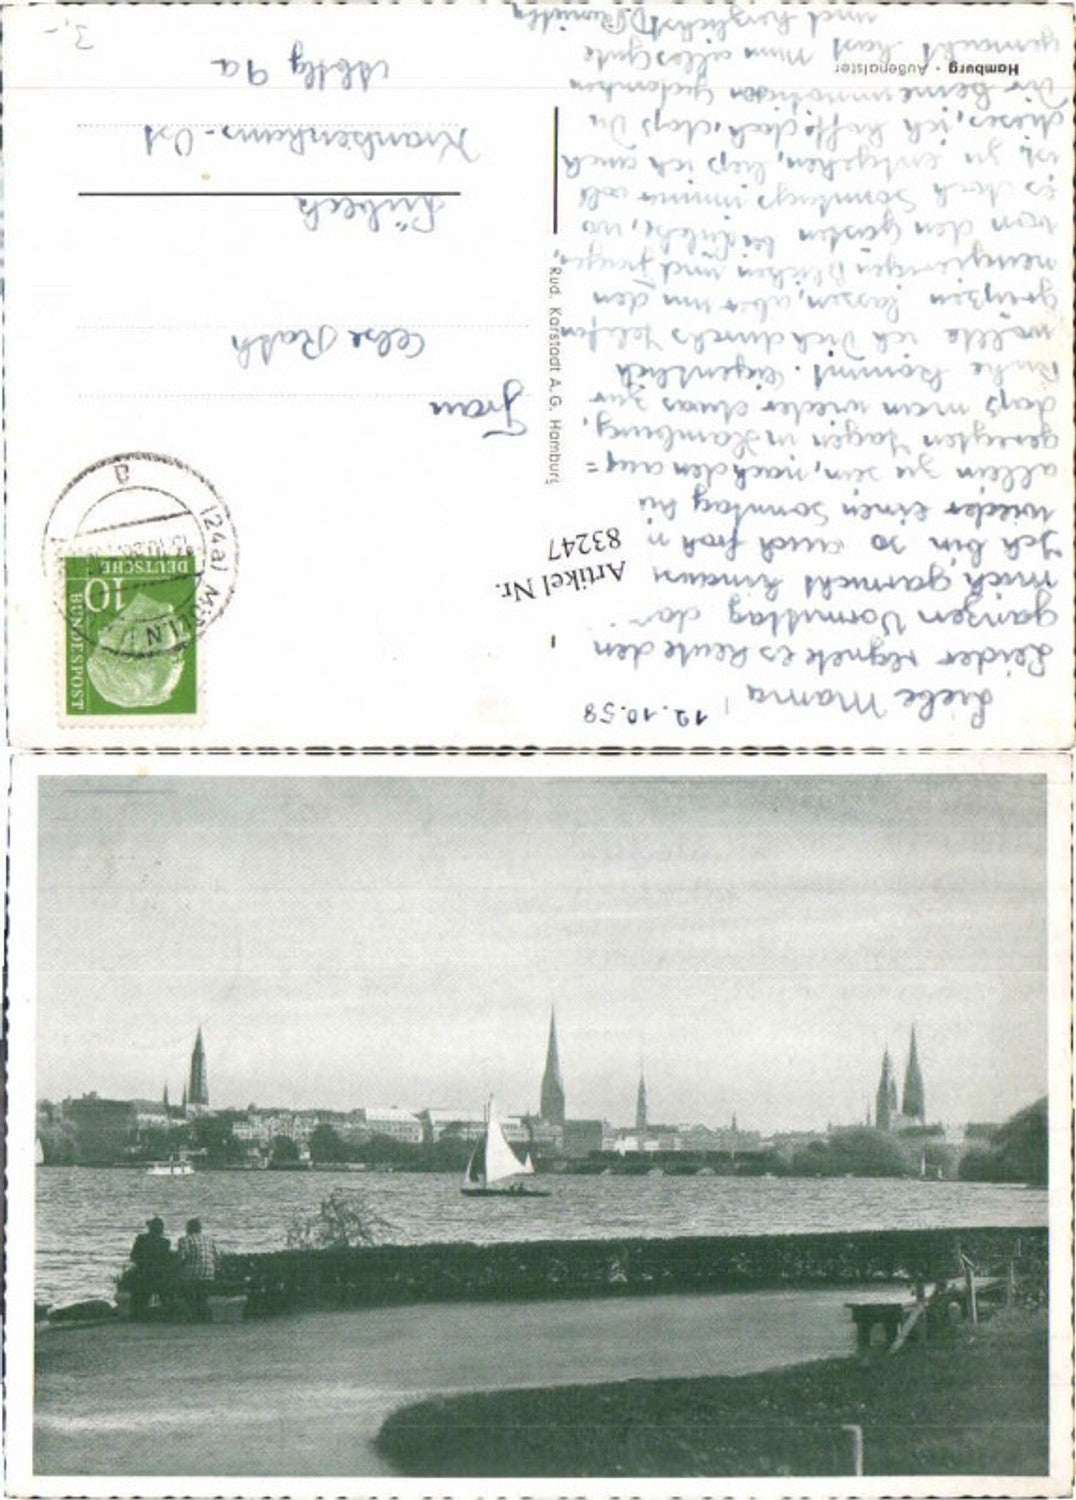 12.10.58
Liebe Mama!
Leider regnete es heute den
ganzen Vormittag daß
mich garnicht hinaus
Ich bin so auch froh
wieder einen Sonntag
allein zu sein, nach den auf=
geregten Tagen in Hamburg,
daß man wieder etwas zur
Ruhe kommt. Eigentlich
wollte ich Dich durchs Telefon
grüßen lassen, aber um den
neugierigen Blicken und Fragen
von den Gästen bei, wo
es doch Sonntags immer voll
ist, zu entgehen, ließ ich auch
dieses, ich hoffe doch, daß Du
Dir keine unnötigen Gedanken
gemacht hast. Nun alles Gute
und herzlichst D.
Hamburg - Außenalster
Rud. Karstadt A. G. Hamburg
Artikel Nr.
83247
Frau
Else Rath
Lübeck
Krankenhaus-Ost
Abtlg 9a
3,-
DEUTSCHE
BUNDESPOST
10
(24a) MÖLLN
a